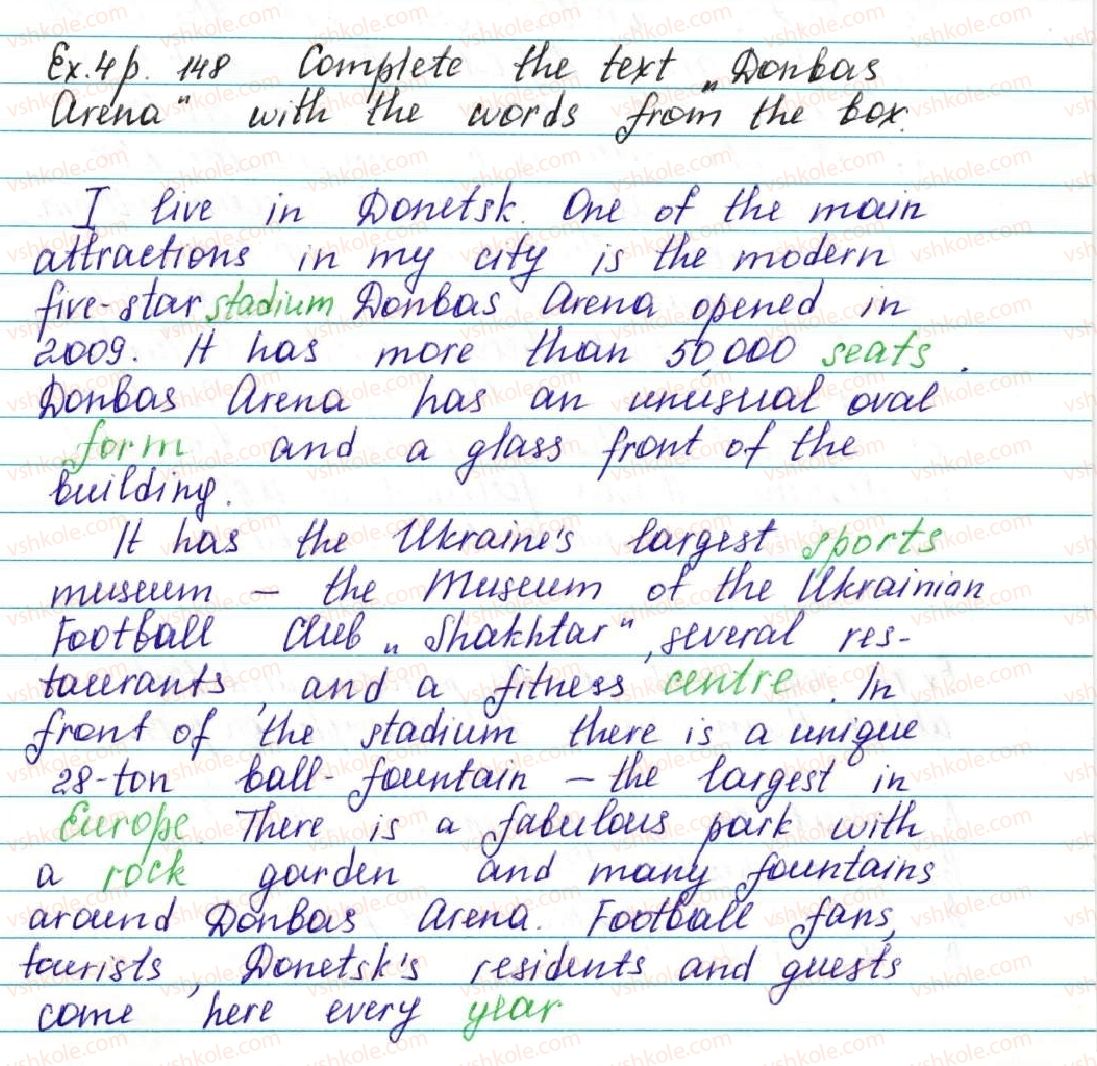 Ex.4 p. 148 Complete the text „Donbas
Arena" with the words from the box.
I live in Donetsk. One of the main
attractions in my city is the modern
five-star stadium Donbas Arena opened in
2009. It has more than 50,000 seats.
Donbas Arena has an unusual oval
form and a glass front of the
building.
It has the Ukraine's largest sports
museum – the Museum of the Ukrainian
Football Club „Shakhtar", several res-
taurants, and a fitness centre. In
front of the stadium there is a unique
28-ton ball-fountain – the largest in
Europe. There is a fabulous park with
a rock garden and many fountains
around Donbas Arena. Football fans,
tourists, Donetsk's residents and guests
come here every year
vshkole.com